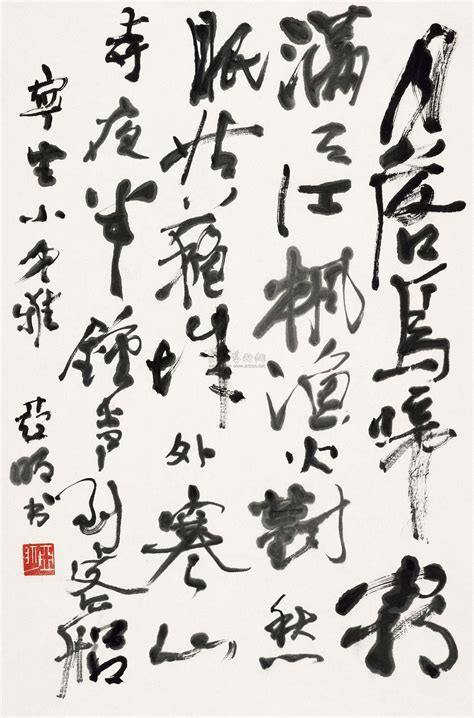 月落烏啼霜
滿天江楓漁火對愁
眠姑蘇城外寒山
寺夜半鐘聲到客船
寧生小雅 亞明书